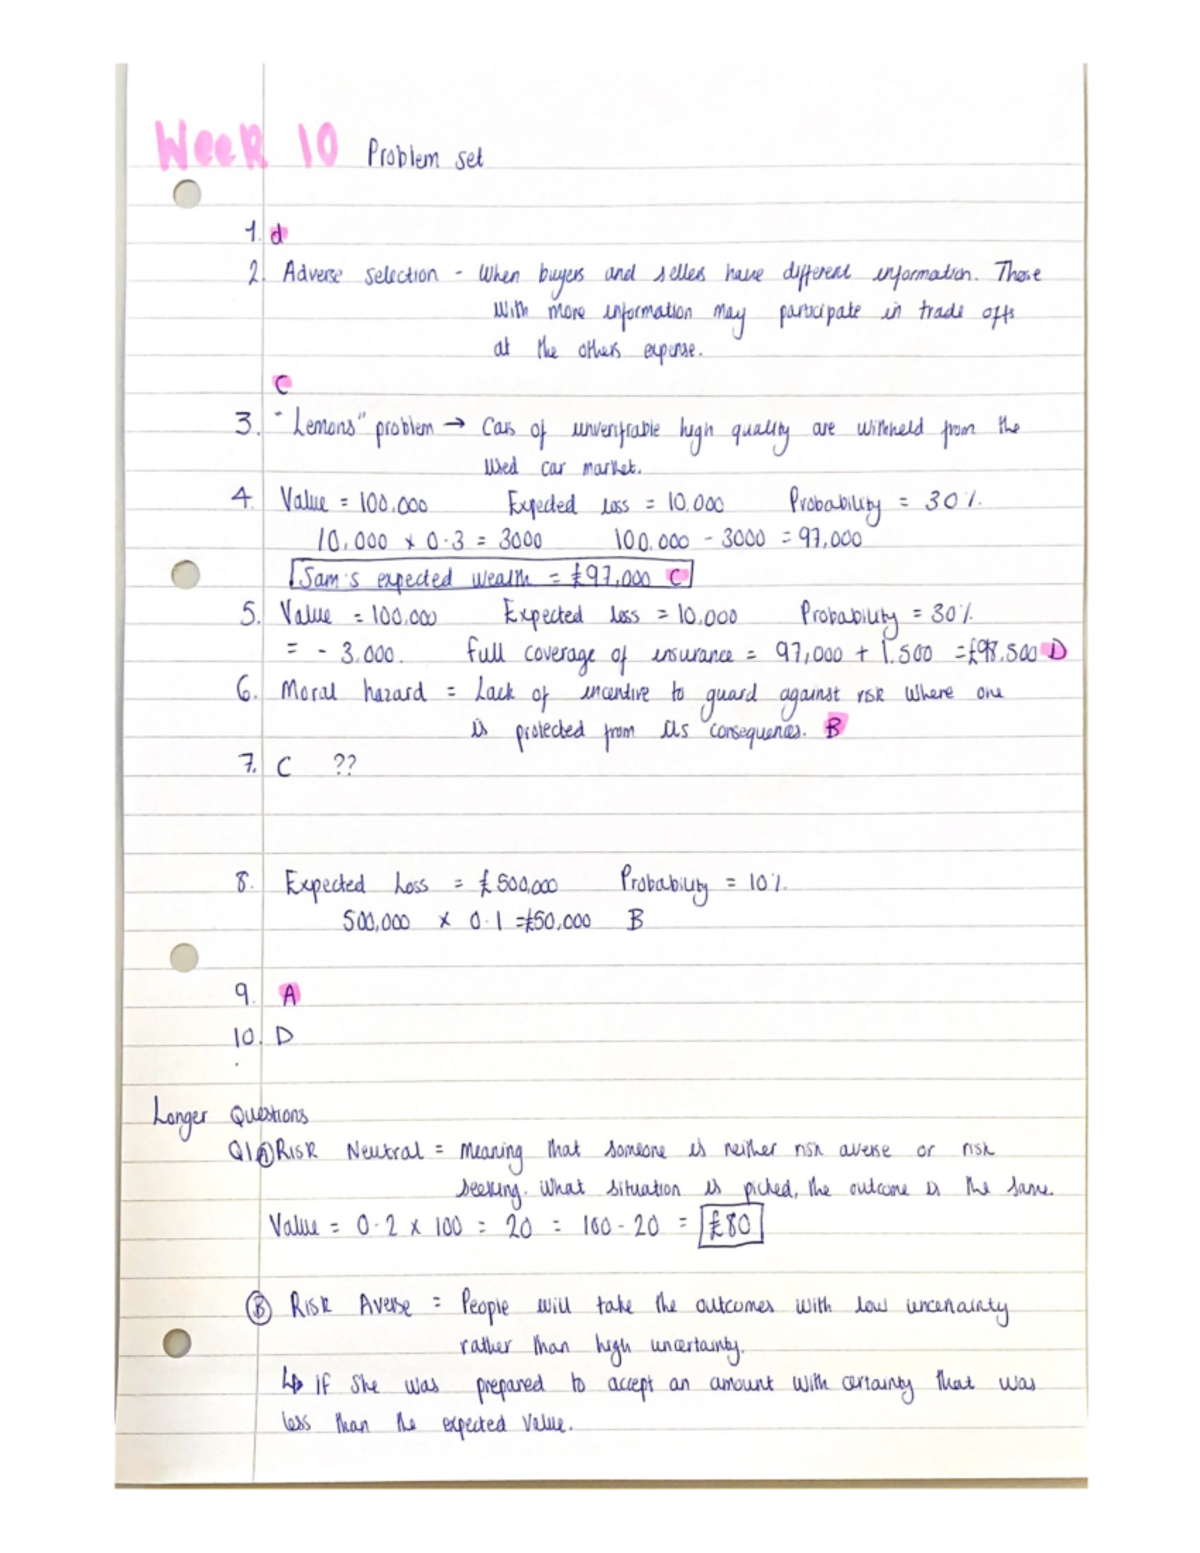 Week 10 Problem set
1. d
2. Adverse selection - When buyers and sellers have different information. Those
with more information may participate in trade offs
at the others expense.
C
3. "Lemons" problem → Cars of unverifiable high quality are withheld from the
Used car market.
4. Value = 100,000 Expected loss = 10,000 Probability = 30%.
10,000 × 0.3 = 3000 100,000 - 3000 = 97,000
Sam's expected wealth = £97,000 C
5. Value = 100,000 Expected loss = 10,000 Probability = 30%.
= - 3,000. full coverage of insurance = 97,000 + 1,500 = £98,500 D
6. Moral hazard = Lack of incentive to guard against risk where one
is protected from its consequences. B
7. C ??
8. Expected Loss = £500,000 Probability = 10%.
500,000 × 0.1 = £50,000 B
9. A
10. D
Longer Questions
Q1 A Risk Neutral = Meaning that someone is neither risk averse or risk
seeking. What situation is picked, the outcome is the same.
Value = 0.2 × 100 = 20 = 100 - 20 = £80
B Risk Averse = People will take the outcomes with low uncertainty
rather than high uncertainty.
↳ if She was prepared to accept an amount with certainty that was
less than the expected Value.